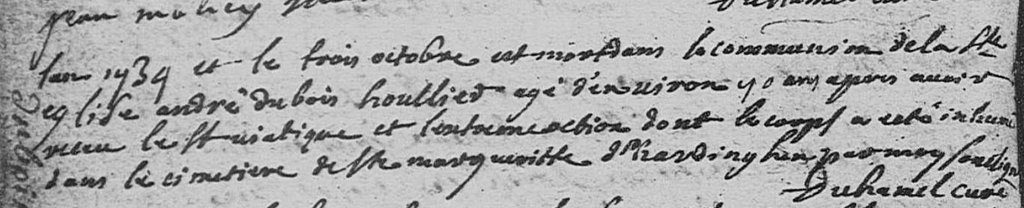 jean
Duhamel
lan 1734 et le trois octobre est mort dans la communion de la Ste
eglise andré dubois houllier agé d'environ 50 ans apres avoir
receu le st viatique et lextremeonction dont le corps a esté inhumé
dans le cimetiere de Ste margueritte d'hardinghen par moy soussigné
Duhamel curé